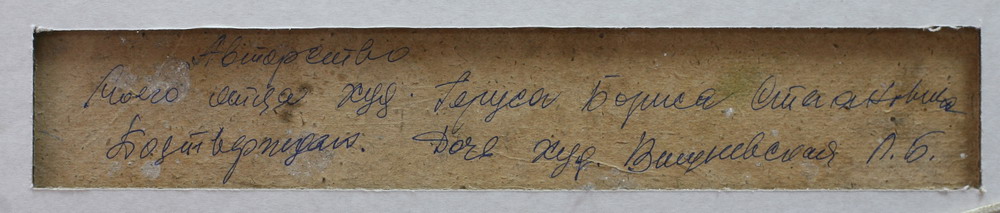 Авторство
моего отца худ. Геруса Бориса
Подтверждаю. Дочь худ. Вишневская Л.Б.